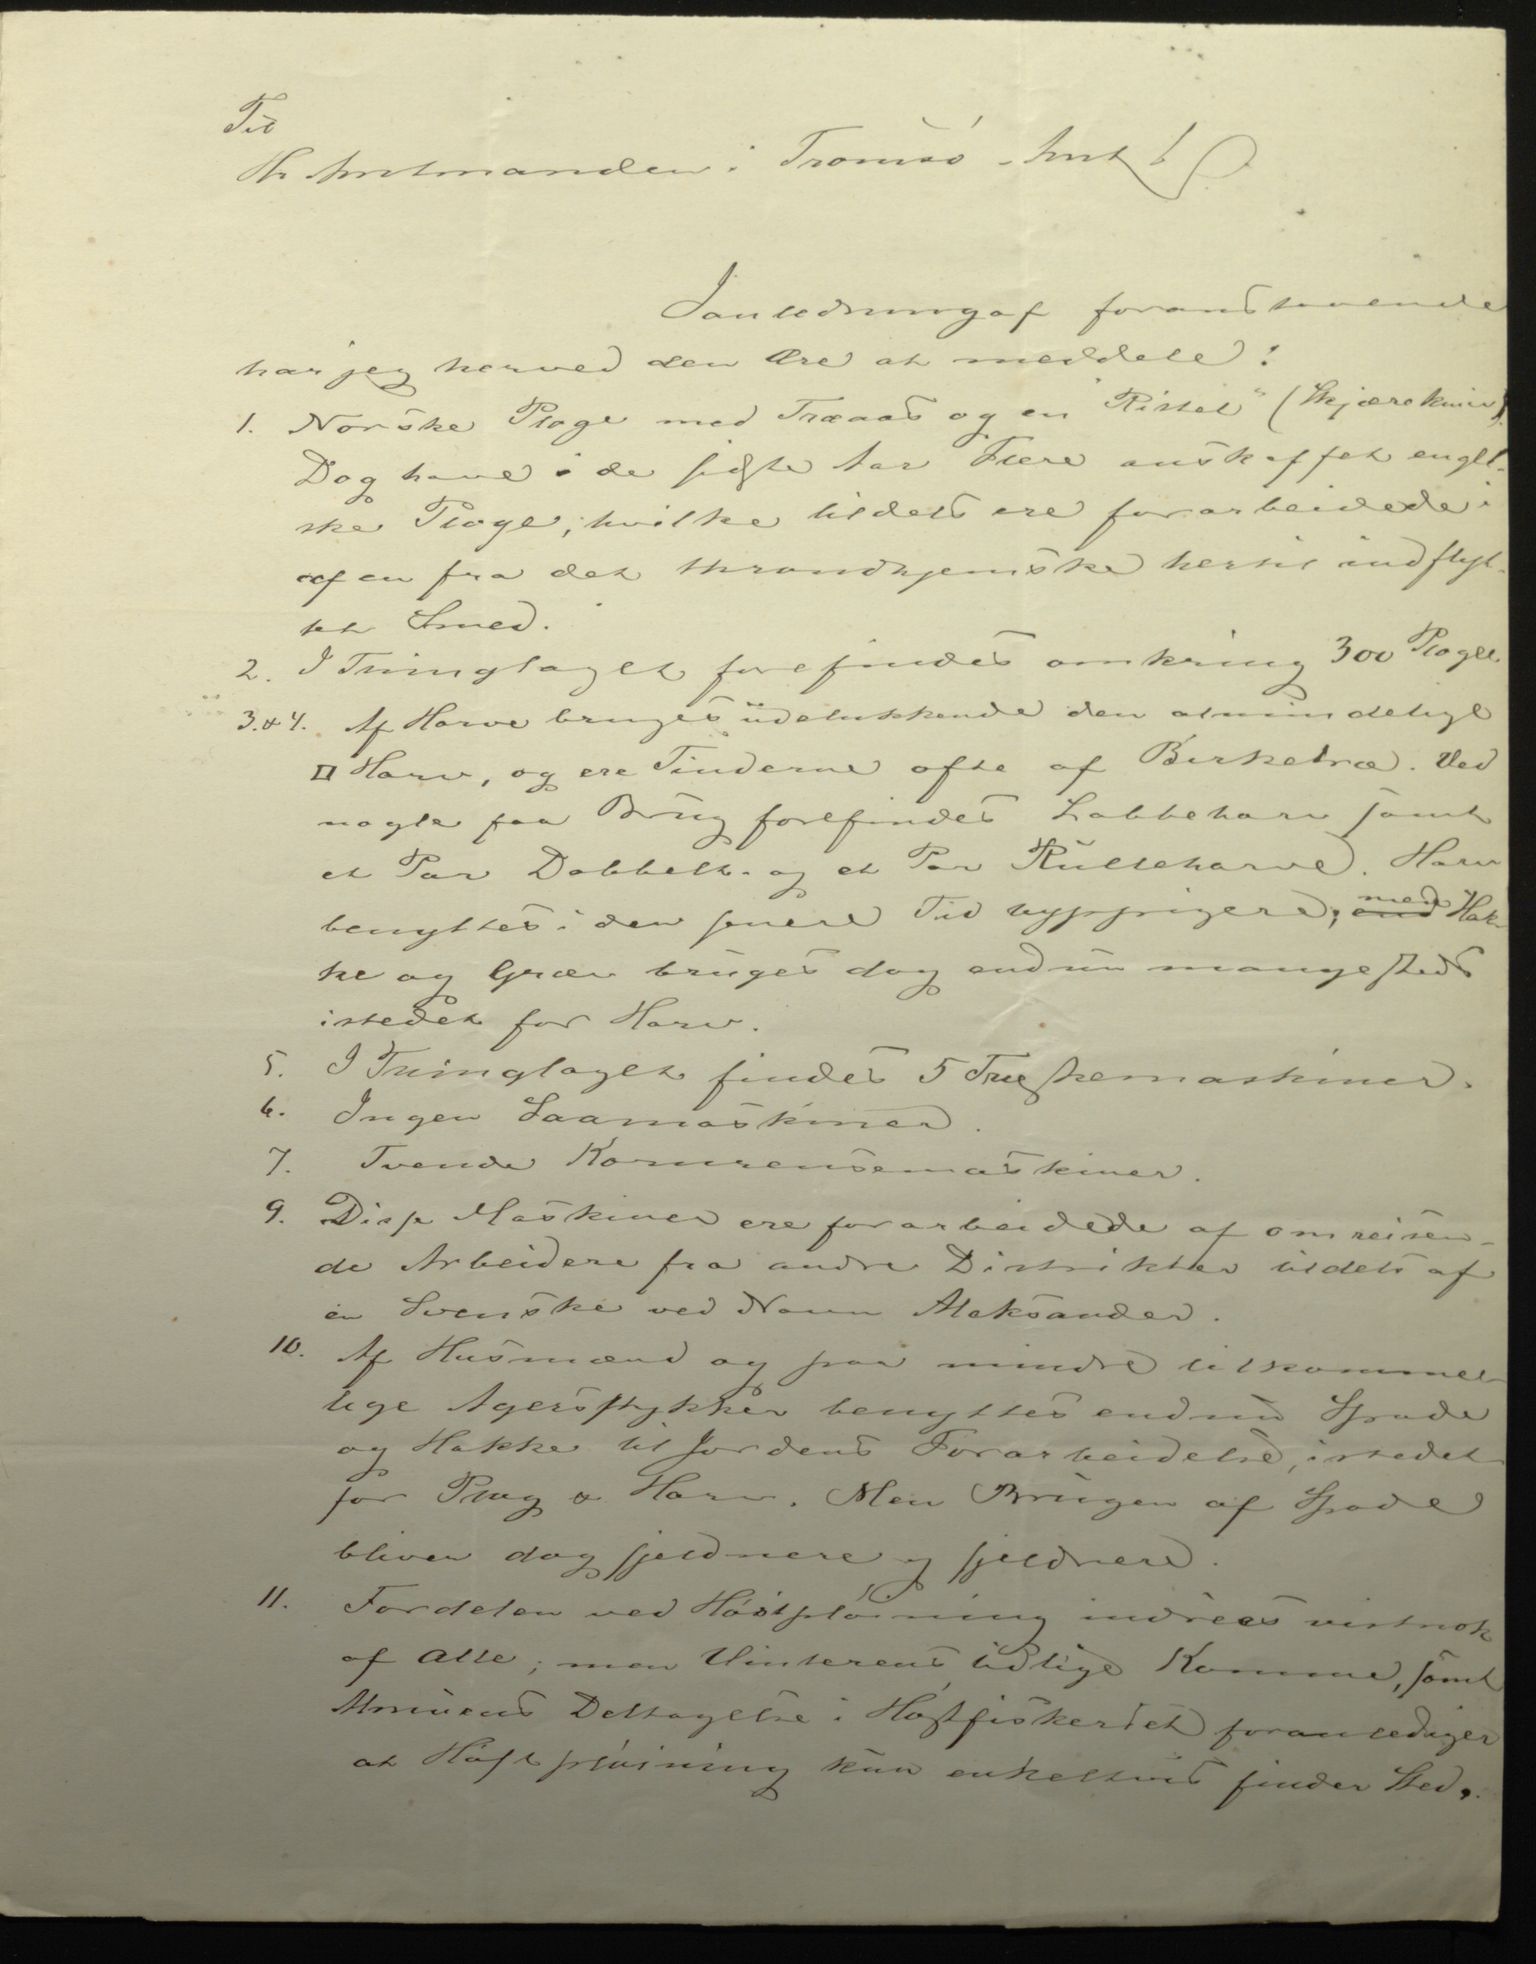 Til
Hr Amtmanden i Tromsø Amt
I anledning af foranstaaende
har jeg herved den Ære at meddele:
1. Norske Ploge med Træaas og en "Ristel" (Skjærekniv).
Dog have i de sidste Aar Flere anskaffet engel-
ske Ploge, hvilke tildels ere forarbeidede i
af en fra det throndhjemske hertil indflyt-
tet Smed.
2. I Thinglaget forefindes omkring 300 Ploge
3. & 4. Af Harve bruges udelukkende den almindelige
▯ Harv, og ere Tinderne ofte af Birketræ. Ved
nogle faa Brug forefindes Labbeharv samt
et Par Dobbelt- og et Par Rulleharve. Harv
benyttes i den senere Tid hyppigere; men Hak-
ke og Græv bruges dog endnu mangesteds
istedet for Harv.
5. I Thinglaget findes 5 Træskemaskiner.
6. Ingen Saamaskiner.
7. Tvende Kornrensemaskiner.
9. Disse Maskiner ere forarbeidede af omreisen-
de Arbeidere fra andre Distrikter tildels af
en Svenske ved Navn Aleksander.
10. Af Husmænd og paa mindre tilkomme-
lige Agerstykker benyttes endnu Spade
og Hakke til Jordens Forarbeidelse, istedet
for Plog & Harv. Men Brugen af Spade
bliver dog sjeldnere og sjeldnere.
11. Fordelen ved Høstpløining indsees vistnok
af Alle; men Vinterens tidlige Komme, samt
Almuens Deltagelse i Høstfiskeriet foranlediger
at Høstpløining kun enkeltvis finder Sted.